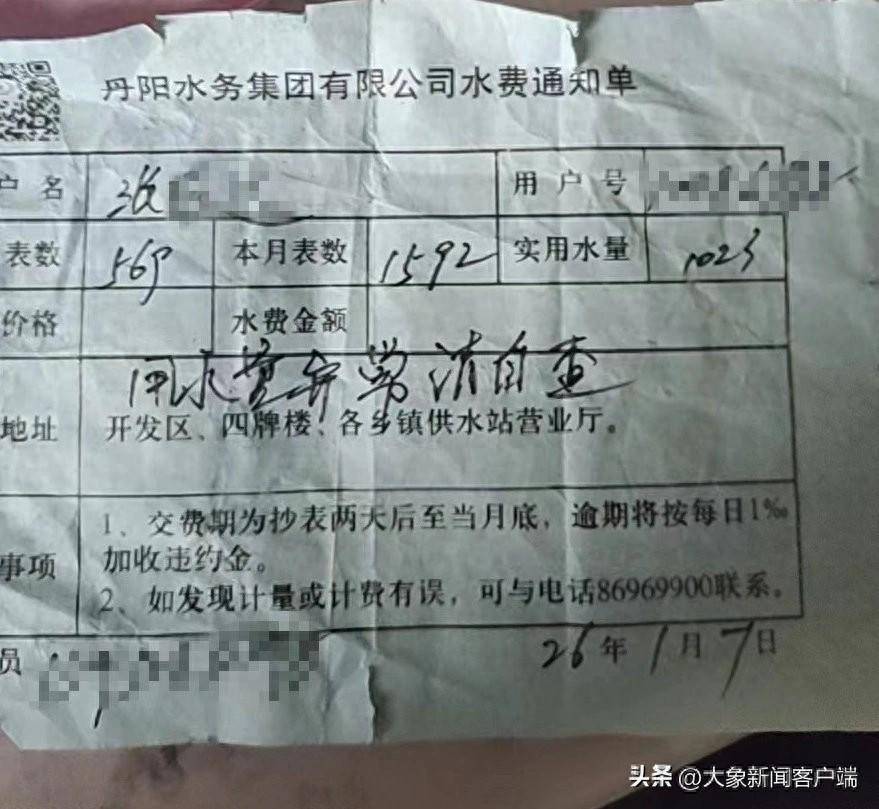 丹阳水务集团有限公司水费通知单
户名 张 用户号
表数 569 本月表数 1592 实用水量 1023
价格 水费金额
用水量异常请自查
地址 开发区、四牌楼、各乡镇供水站营业厅。
1、交费期为抄表两天后至当月底，逾期将按每日1‰
加收违约金。
事项
2、如发现计量或计费有误，可与电话86969900联系。
员
26年1月7日
头条 @大象新闻客户端